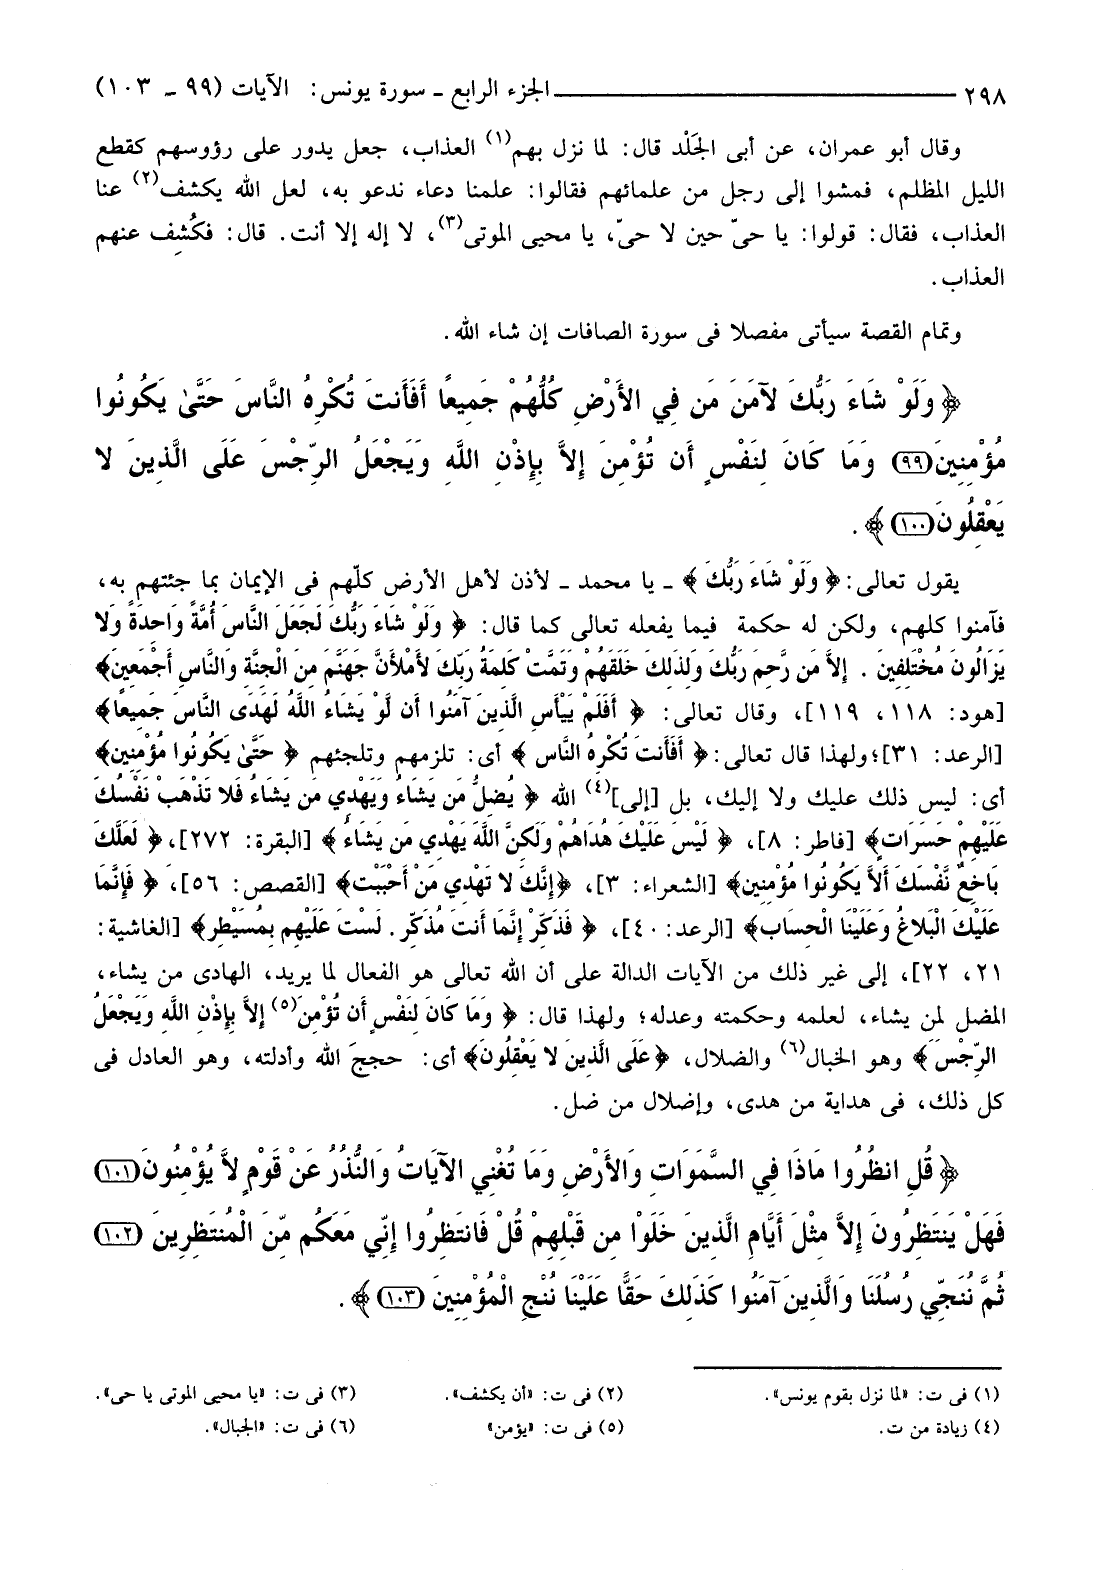 ٢٩٨ ــــــــــــــــ الجزء الرابع ـ سورة يونس: الآيات (٩٩ ـ ١٠٣)
وقال أبو عمران، عن أبى الجَلْد قال: لما نزل بهم(١) العذاب، جعل يدور على رؤوسهم كقطع
الليل المظلم، فمشوا إلى رجل من علمائهم فقالوا: علمنا دعاء ندعو به، لعل الله يكشف(٢) عنا
العذاب، فقال: قولوا: يا حىّ حين لا حىّ، يا محيى الموتى(٣)، لا إله إلا أنت. قال: فكُشِف عنهم
العذاب.
وتمام القصة سيأتى مفصلا فى سورة الصافات إن شاء الله.
﴿ وَلَوْ شَاءَ رَبُّكَ لآمَنَ مَن فِي الأَرْضِ كُلُّهُمْ جَمِيعًا أَفَأَنتَ تُكْرِهُ النَّاسَ حَتَّىٰ يَكُونُوا
مُؤْمِنِينَ (٩٩) وَمَا كَانَ لِنَفْسٍ أَن تُؤْمِنَ إِلاَّ بِإِذْنِ اللَّهِ وَيَجْعَلُ الرِّجْسَ عَلَى الَّذِينَ لا
يَعْقِلُونَ (١٠٠) ﴾ .
يقول تعالى: ﴿ وَلَوْ شَاءَ رَبُّكَ ﴾ ـ يا محمد ـ لأذن لأهل الأرض كلّهم فى الإيمان بما جئتهم به،
فآمنوا كلهم، ولكن له حكمة فيما يفعله تعالى كما قال: ﴿ وَلَوْ شَاءَ رَبُّكَ لَجَعَلَ النَّاسَ أُمَّةً وَاحِدَةً وَلا
يَزَالُونَ مُخْتَلِفِينَ . إِلاَّ مَن رَّحِمَ رَبُّكَ وَلِذَلِكَ خَلَقَهُمْ وَتَمَّتْ كَلِمَةُ رَبِّكَ لأَمْلأَنَّ جَهَنَّمَ مِنَ الْجِنَّةِ وَالنَّاسِ أَجْمَعِينَ﴾
[هود: ١١٨، ١١٩]، وقال تعالى: ﴿ أَفَلَمْ يَيْأَسِ الَّذِينَ آمَنُوا أَن لَّوْ يَشَاءُ اللَّهُ لَهَدَى النَّاسَ جَمِيعًا﴾
[الرعد: ٣١]؛ولهذا قال تعالى: ﴿ أَفَأَنتَ تُكْرِهُ النَّاسَ ﴾ أى: تلزمهم وتلجئهم ﴿ حَتَّىٰ يَكُونُوا مُؤْمِنِينَ﴾
أى: ليس ذلك عليك ولا إليك، بل [إلى](٤) الله ﴿ يُضِلُّ مَن يَشَاءُ وَيَهْدِي مَن يَشَاءُ فَلا تَذْهَبْ نَفْسُكَ
عَلَيْهِمْ حَسَرَاتٍ﴾ [فاطر: ٨]، ﴿ لَيْسَ عَلَيْكَ هُدَاهُمْ وَلَكِنَّ اللَّهَ يَهْدِي مَن يَشَاءُ ﴾ [البقرة: ٢٧٢]، ﴿ لَعَلَّكَ
بَاخِعٌ نَّفْسَكَ أَلاَّ يَكُونُوا مُؤْمِنِينَ﴾ [الشعراء: ٣]، ﴿إِنَّكَ لا تَهْدِي مَنْ أَحْبَبْتَ﴾ [القصص: ٥٦]، ﴿ فَإِنَّمَا
عَلَيْكَ الْبَلاغُ وَعَلَيْنَا الْحِسَابُ﴾ [الرعد: ٤٠]، ﴿ فَذَكِّرْ إِنَّمَا أَنتَ مُذَكِّرٌ . لَسْتَ عَلَيْهِم بِمُسَيْطِرٍ﴾ [الغاشية:
٢١، ٢٢]، إلى غير ذلك من الآيات الدالة على أن الله تعالى هو الفعال لما يريد، الهادى من يشاء،
المضل لمن يشاء، لعلمه وحكمته وعدله؛ ولهذا قال: ﴿ وَمَا كَانَ لِنَفْسٍ أَن تُؤْمِنَ(٥) إِلاَّ بِإِذْنِ اللَّهِ وَيَجْعَلُ
الرِّجْسَ ﴾ وهو الخبال(٦) والضلال، ﴿عَلَى الَّذِينَ لا يَعْقِلُونَ﴾ أى: حججَ الله وأدلته، وهو العادل فى
كل ذلك، فى هداية من هدى، وإضلال من ضل.
﴿ قُلِ انظُرُوا مَاذَا فِي السَّمَوَاتِ وَالأَرْضِ وَمَا تُغْنِي الآيَاتُ وَالنُّذُرُ عَن قَوْمٍ لاَّ يُؤْمِنُونَ (١٠١)
فَهَلْ يَنتَظِرُونَ إِلاَّ مِثْلَ أَيَّامِ الَّذِينَ خَلَوْا مِن قَبْلِهِمْ قُلْ فَانتَظِرُوا إِنِّي مَعَكُم مِّنَ الْمُنتَظِرِينَ (١٠٢)
ثُمَّ نُنَجِّي رُسُلَنَا وَالَّذِينَ آمَنُوا كَذَلِكَ حَقًّا عَلَيْنَا نُنجِ الْمُؤْمِنِينَ (١٠٣) ﴾ .
(١) فى ت: «لما نزل بقوم يونس». (٢) فى ت: «أن يكشف». (٣) فى ت: «يا محيى الموتى يا حى».
(٤) زيادة من ت. (٥) فى ت: «يؤمن» (٦) فى ت: «الجبال».